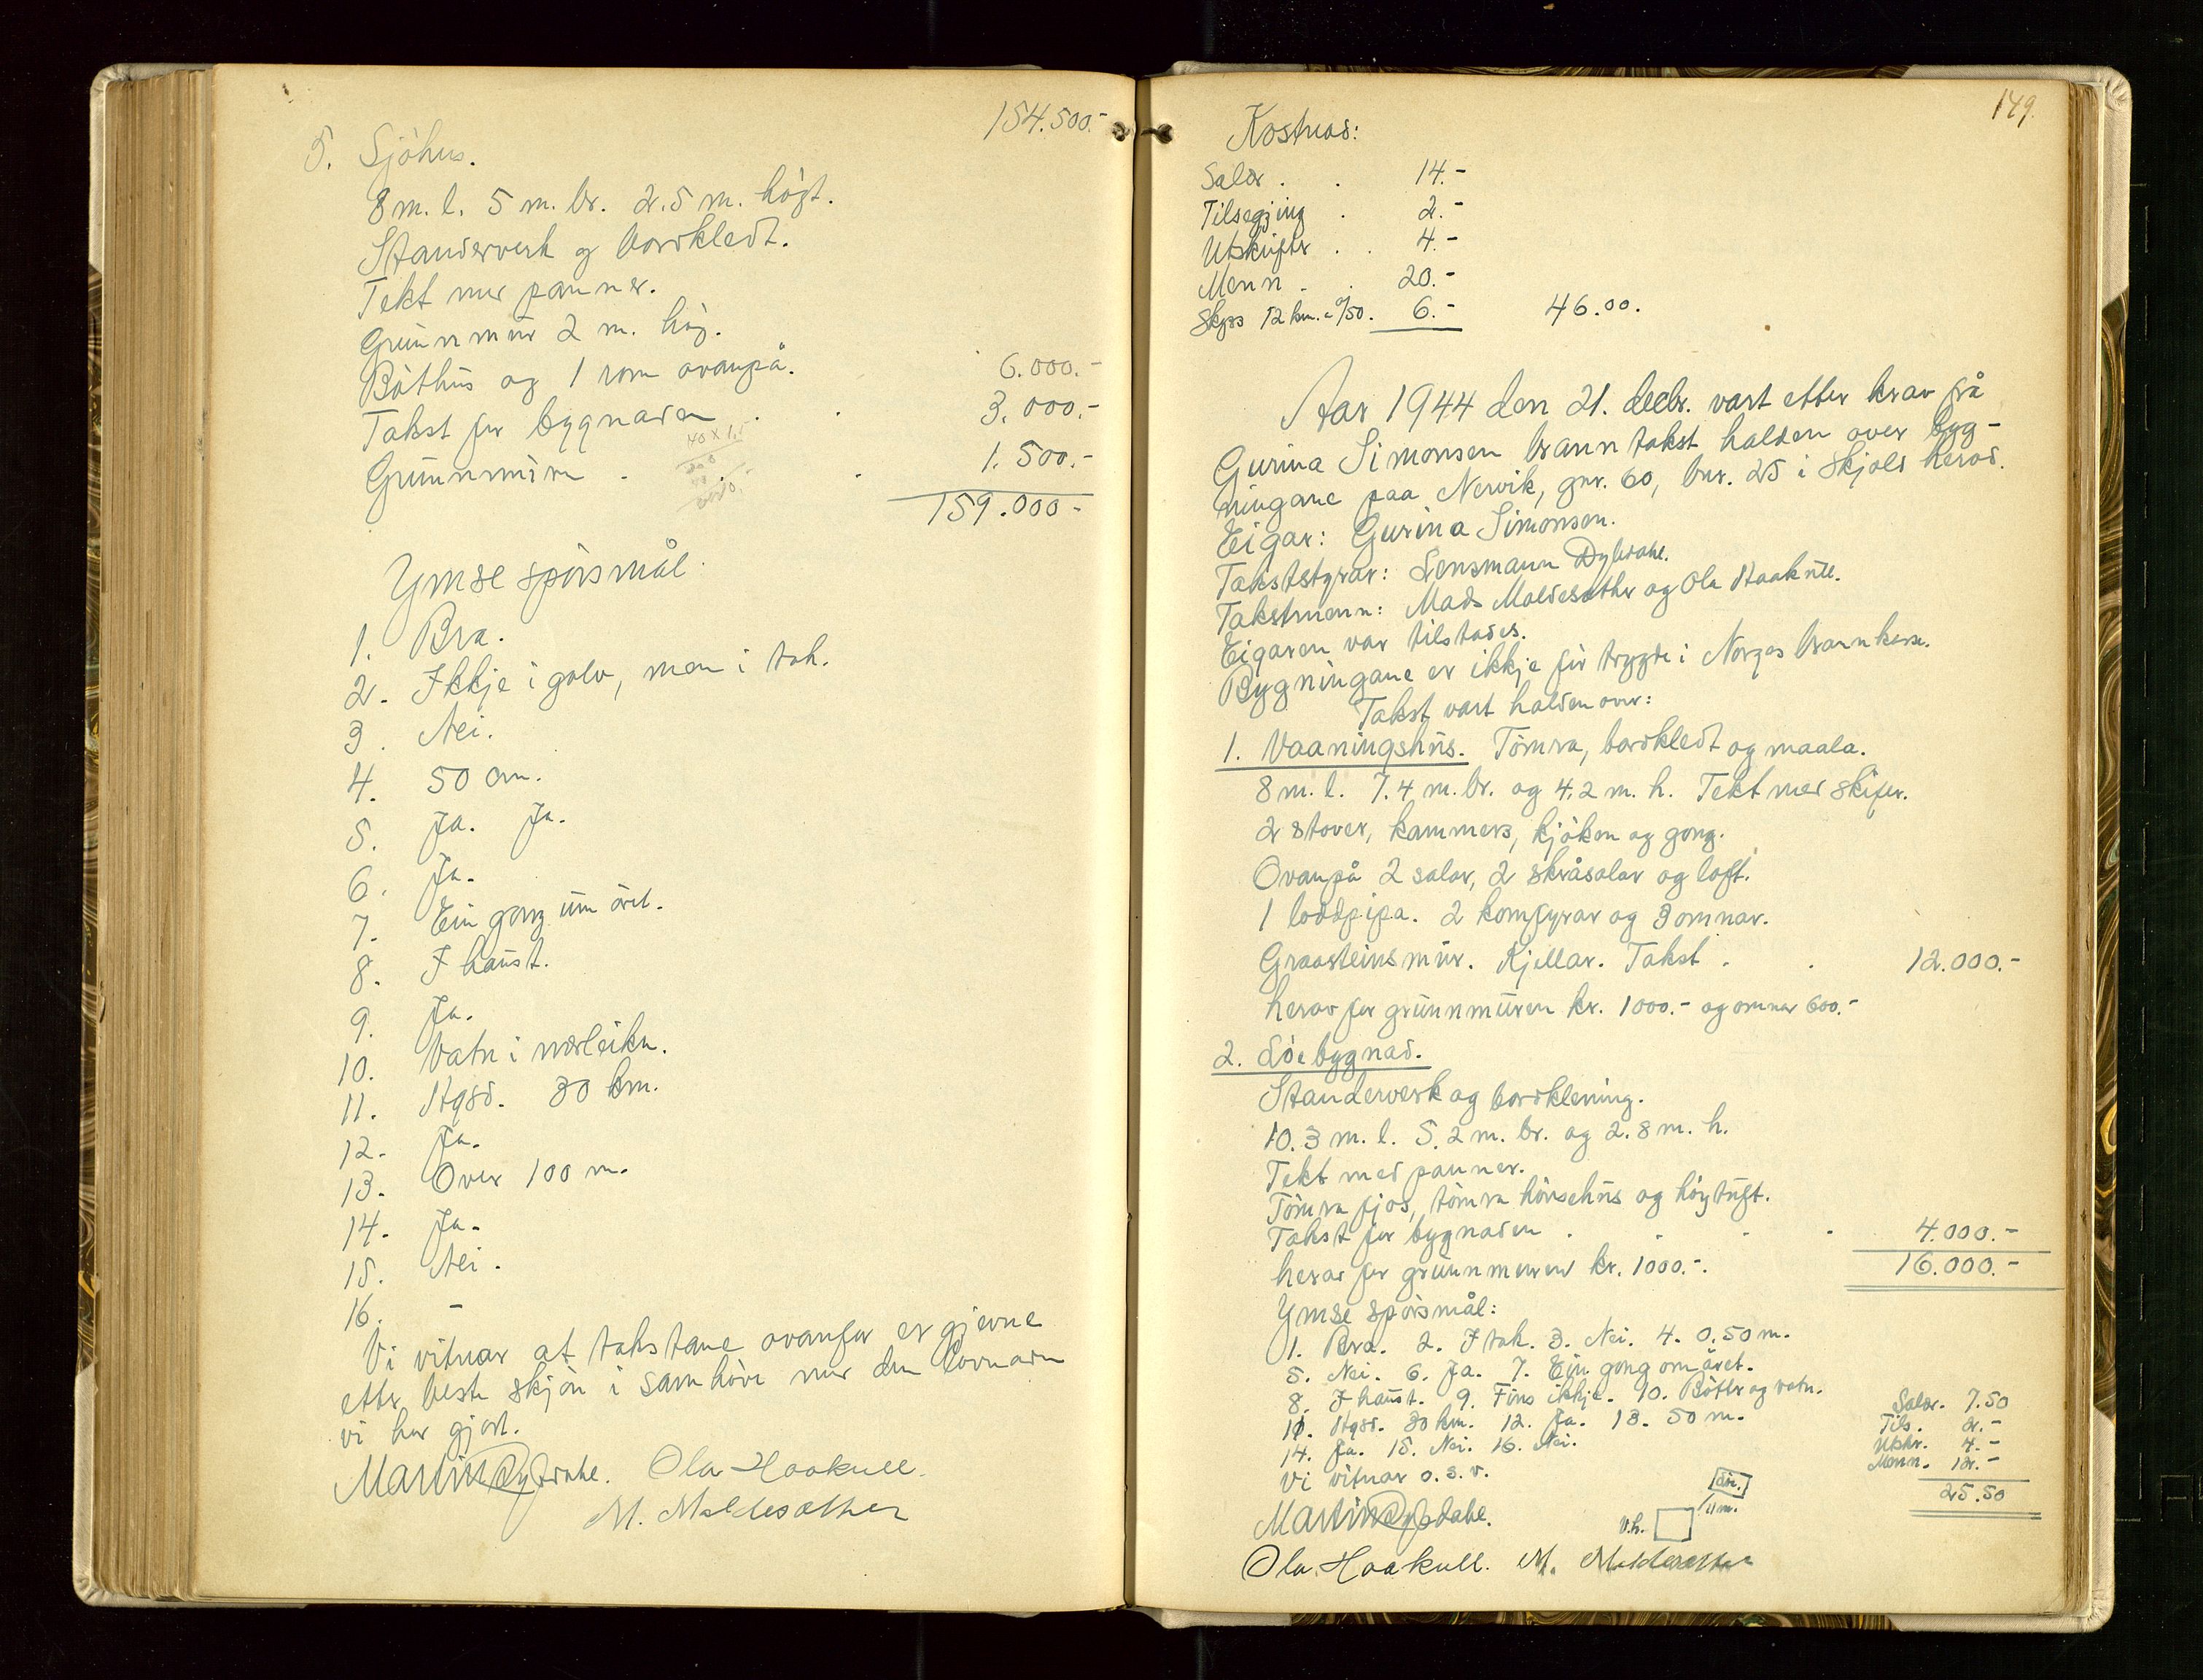 154.500.-
5. Sjöhus.
8 m. l. 5 m. br. 2.5 m. högt.
Standerverk og bordkledt.
Tekt med panner.
Grunnmur 2 m. hög.
Båthus og 1 rom ovanpå. 6.000.-
Takst for bygnaden . . 3.000.-
40 x 1.5
Grunnmuren . . . 1.500.-
159.000-
Ymse spörsmål.
1. Bra.
2. Ikkje i golv, men i tak.
3. Nei.
4. 50 cm.
5. Ja. Ja.
6. Ja.
7. Ein gong um året.
8. I haust.
9. Ja.
10. Vatn i nærleiken.
11. Hgsd. 30 km.
12. Ja.
13. Over 100 m.
14. Ja.
15. Nei.
16. -
Vi vitnar at takstane ovanfor er gjevne
etter beste skjön i samhöve med den lovnaden
vi har gjort.
Martin Dybdahl. Ola Haakull.
M. Maldesæther
149.
Kostnad:
Salær . . 14.-
Tilsegjing . 2.-
Utskrifter . . 4.-
Menn . . 20.-
Skyss 12 km. a 0/50. 6.- 46.00.
Aar 1944 den 21. decbr. vart etter krav frå
Gurina Simonsen branntakst halden over byg-
ningane paa Nervik, gnr. 60, bnr. 25 i Skjold herad.
Eigar: Gurina Simonsen.
Takststyrar: Lensmann Dybdahl.
Takstmenn: Mads Maldesæther og Ola Haakull.
Eigaren var tilstades.
Bygningane er ikkje för trygde i Norges brannkasse.
Takst vart halden over:
1. Vaaningshus. Tömra, bordkledt og maala.
8 m. l. 7.4 m. br. og 4.2 m. h. Tekt med skifer.
2 stover, kammers, kjöken og gong.
Ovanpå 2 salar, 2 skråsalar og loft.
1 loddpipa. 2 komfyrar og 3 omnar.
Graasteinsmur. Kjellar. Takst . . 12.000.-
herav for grunnmuren kr. 1000.- og omnar 600.-
2. Löebygnad.
Standerverk og bordklening.
10.3 m. l. 5.2 m. br. og 2.8 m. h.
Tekt med panner.
Tömra fjos, tömra hönsehus og höytuft.
Takst for bygnaden . . . . 4.000.-
herav for grunnmuren kr. 1000.-. 16.000.-
Ymse spörsmål:
1. Bra. 2. I tak. 3. Nei. 4. 0.50 m.
5. Nei. 6. Ja. 7. Ein gong om året.
8. I haust. 9. Fins ikkje. 10. Bötter og vatn.
11. Hgsd. 30 km. 12. Ja. 13. 50 m.
14. Ja. 15. Nei. 16. Nei.
Vi vitnar o. s. v.
Salær. 7.50
Tils. 2.-
Utskr. 4.-
Menn. 12.-
25.50
Löe.
11 m.
V.h.
Martin Dybdahl.
Ola Haakull. M. Maldesæther